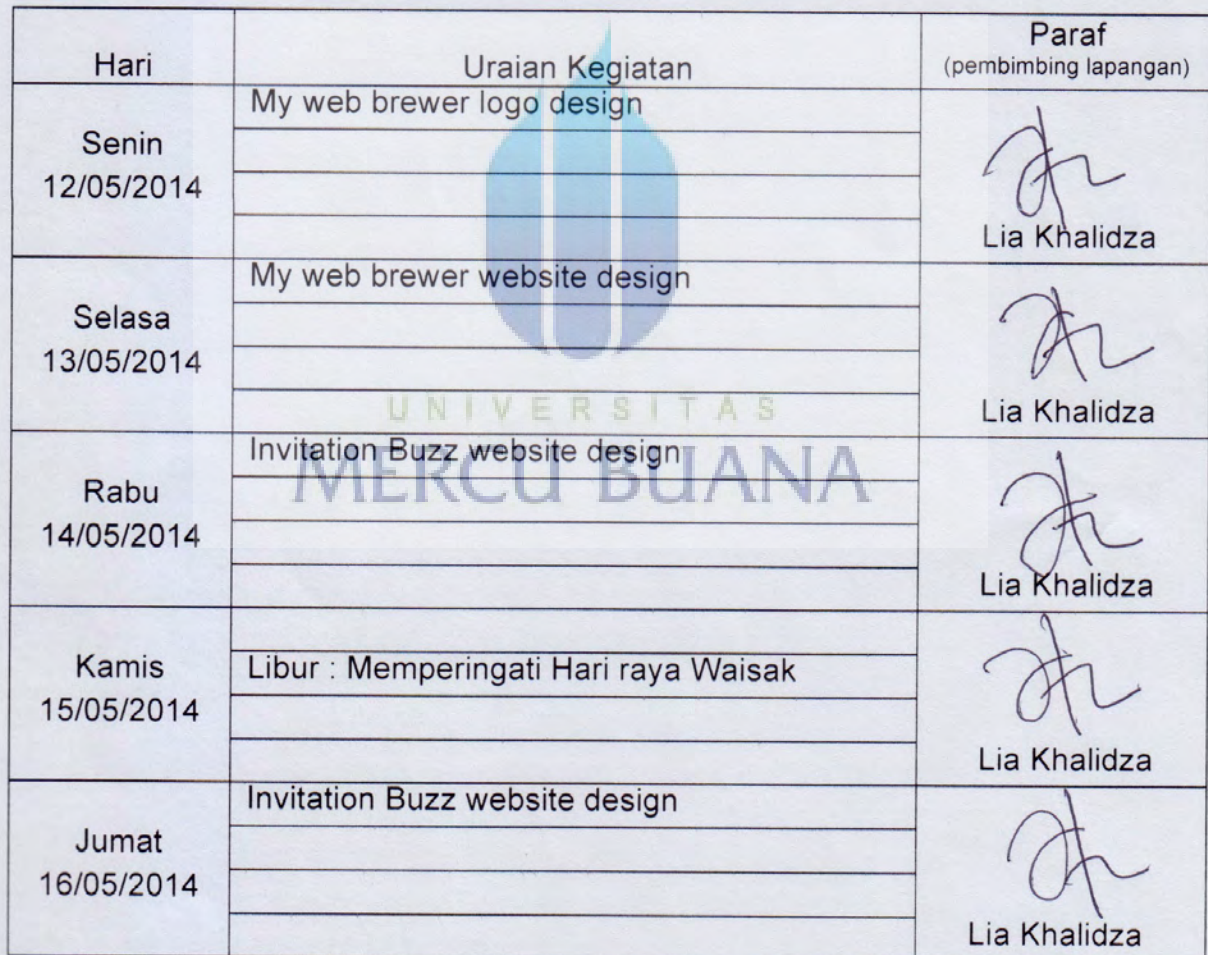 Hari
Uraian Kegiatan
Paraf
(pembimbing lapangan)
Senin
12/05/2014
My web brewer logo design
Lia Khalidza
Selasa
13/05/2014
My web brewer website design
Lia Khalidza
UNIVERSITAS
MERCU BUANA
Rabu
14/05/2014
Invitation Buzz website design
Lia Khalidza
Kamis
15/05/2014
Libur : Memperingati Hari raya Waisak
Lia Khalidza
Jumat
16/05/2014
Invitation Buzz website design
Lia Khalidza